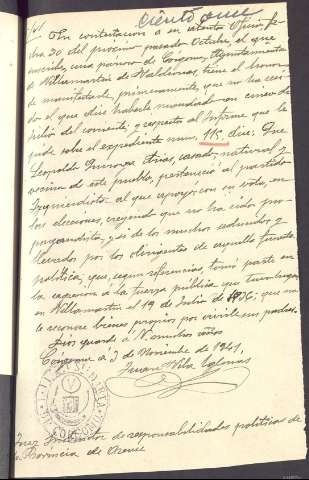 Ciento once
En contestación a su atento Oficio, fe-
cha 30 del próximo pasado Octubre, el que
suscribe, una párroco de Córgoma, Ayuntamiento
de Villamartín de Valdeorras, tiene el honor
de manifestarle, primeramente, que no ha reci-
do el que dice haberle mandado en cinco de
julio del corriente, y respecto al Informe que le
pide sobre el expediente núm. 115, dice: Que
Leopoldo Arias, casado, natural y
vecino de este pueblo, perteneció al partido
Izquierdista al que apoyó con su voto, en
las elecciones, creyendo que no ha sido pro-
pagandista, y sí de los muchos seducidos y
llevados por los dirigentes de aquella funesta
política, que, según referencias, tomó parte en
la agresión a la fuerza pública que tuvo lugar
en Villamartín el 19 de Julio de 1936; que no
le conoce bienes propios por vivir con sus padres.
Dios guarde a V. muchos años
Córgoma a 3 de Noviembre de 1941.
Juan Vila
Juez Instructor de responsabilidades políticas de
la Provincia de Orense